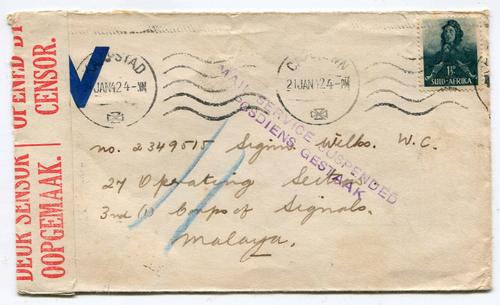 OPENED BY
CENSOR.
DEUR SENSOR
OOPGEMAAK.
21 JAN 42 4-NM
21 JAN 42 4-PM
1½D
SUID-AFRIKA
MAIL SERVICE SUSPENDED
POSDIENS GESTAAK
no. 2349515 Sigmn Wilks. W. C.
27 Operating Section
3rd (I) Corps of Signals.
Malaya.